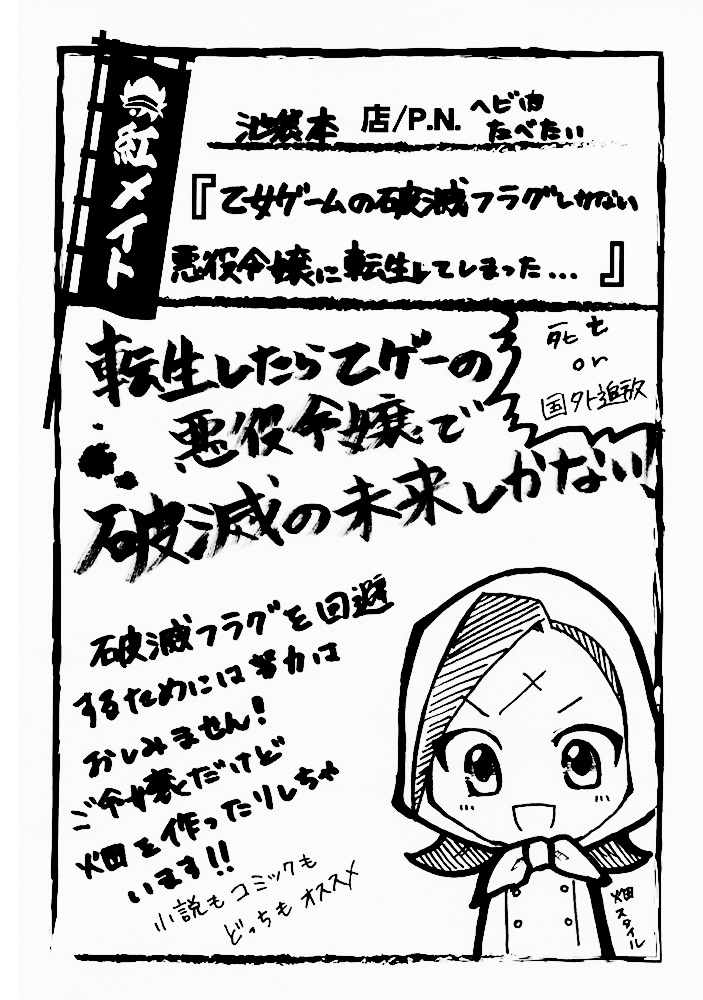 紅メイト
池袋本 店/P.N. ヘビ肉
たべたい
『乙女ゲームの破滅フラグしかない
悪役令嬢に転生してしまった…』
転生したら乙ゲーの
悪役令嬢で
破滅の未来しかない!
死亡
or
国外追放
破滅フラグを回避
するためには努力は
おしみません!
ご令嬢だけど
畑を作ったりしちゃ
います!!
小説もコミックも
どっちもオススメ
畑スタイル